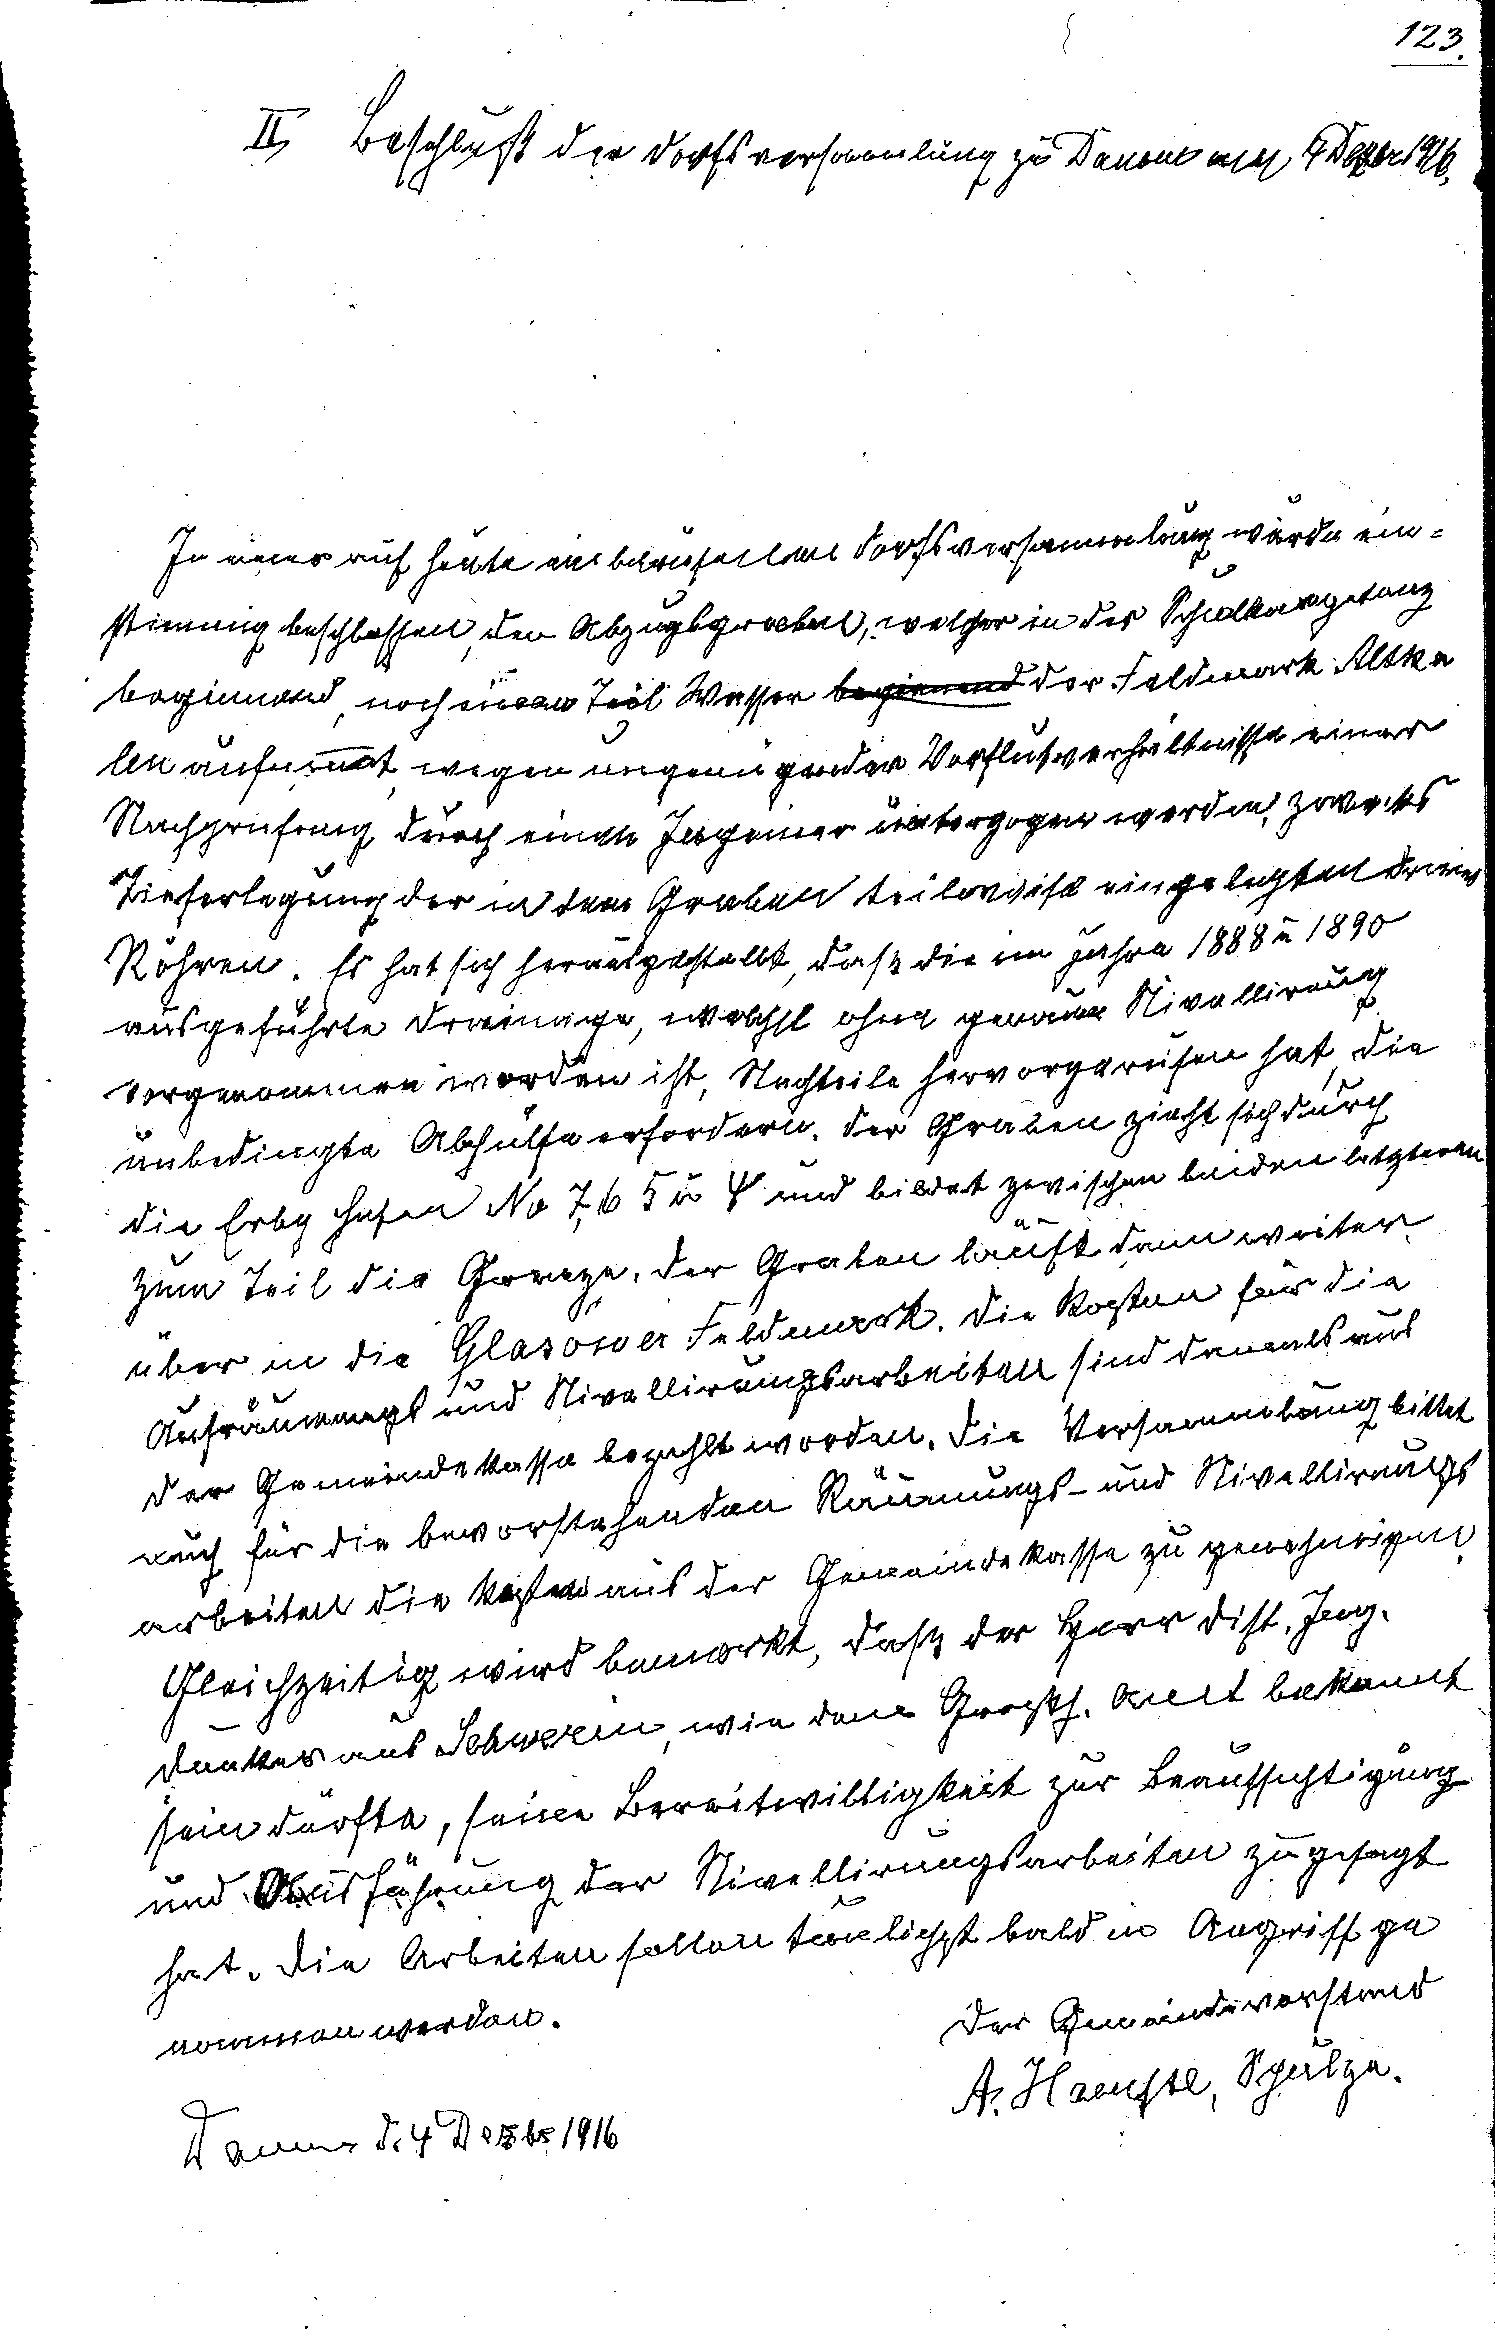 123.
II, Beschluß der Dorfsversammlung zu Damm am 4 Dezbr 1916.
In einer auf heute einberufenen Dorfsversammlung wurde ein=
stimmig beschlossen, den Abzugsgraben, welcher in der
beginnend, noch einen Teil Wasser beginnend der Feldmark Altka
len aufnimmt, wegen ungenügender Vorflutverhältnisse einer
Nachprüfung durch einen Ingenier unterzogen werden, zwecks
Tieferlegung der in dem Graben teilweise eingelegten Drain
Röhren. Es hat sich herausgestellt, daß die im Jahre 1888 u 1890
ausgeführte Drainage, welche ohne genaue Nivellirung
vorgenommen worden ist, Nachteile hervorgerufen hat, die
unbedingte Abhülfe erfordern. Der Graben zieht sich durch
die Erbp Hufen No 7, 6 5 u 4 und bildet zwischen beiden letzteren
zum Teil die Grenze. Der Graben läuft dann weiter
über in die Glasower Feldmark. Die Kosten für die
Aufräumungs und Nivellirungsarbeiten sind damals aus
der Gemeindekasse bezahlt worden. Die Versammlung bittet
auch für die bevorstehenden Räumungs- und Nivellirungs
arbeiten die Kosten aus der Gemeindekasse zu genehmigen.
Gleichzeitig wird bemerkt, daß der Herr Dist. Ing.
aus Schwerin, wie dem Großh. Amt bekannt
sein dürfte, seine Bereitwilligkeit zur Beaufsichtigung
und Ausführung der Nivellirungsarbeiten zugesagt
hat. Die Arbeiten sollen tunlichst bald in Angriff ge
nommen werden.
Der Gemeindevorstand
A. Schulze.
Damm d. 4 Dezbr 1916